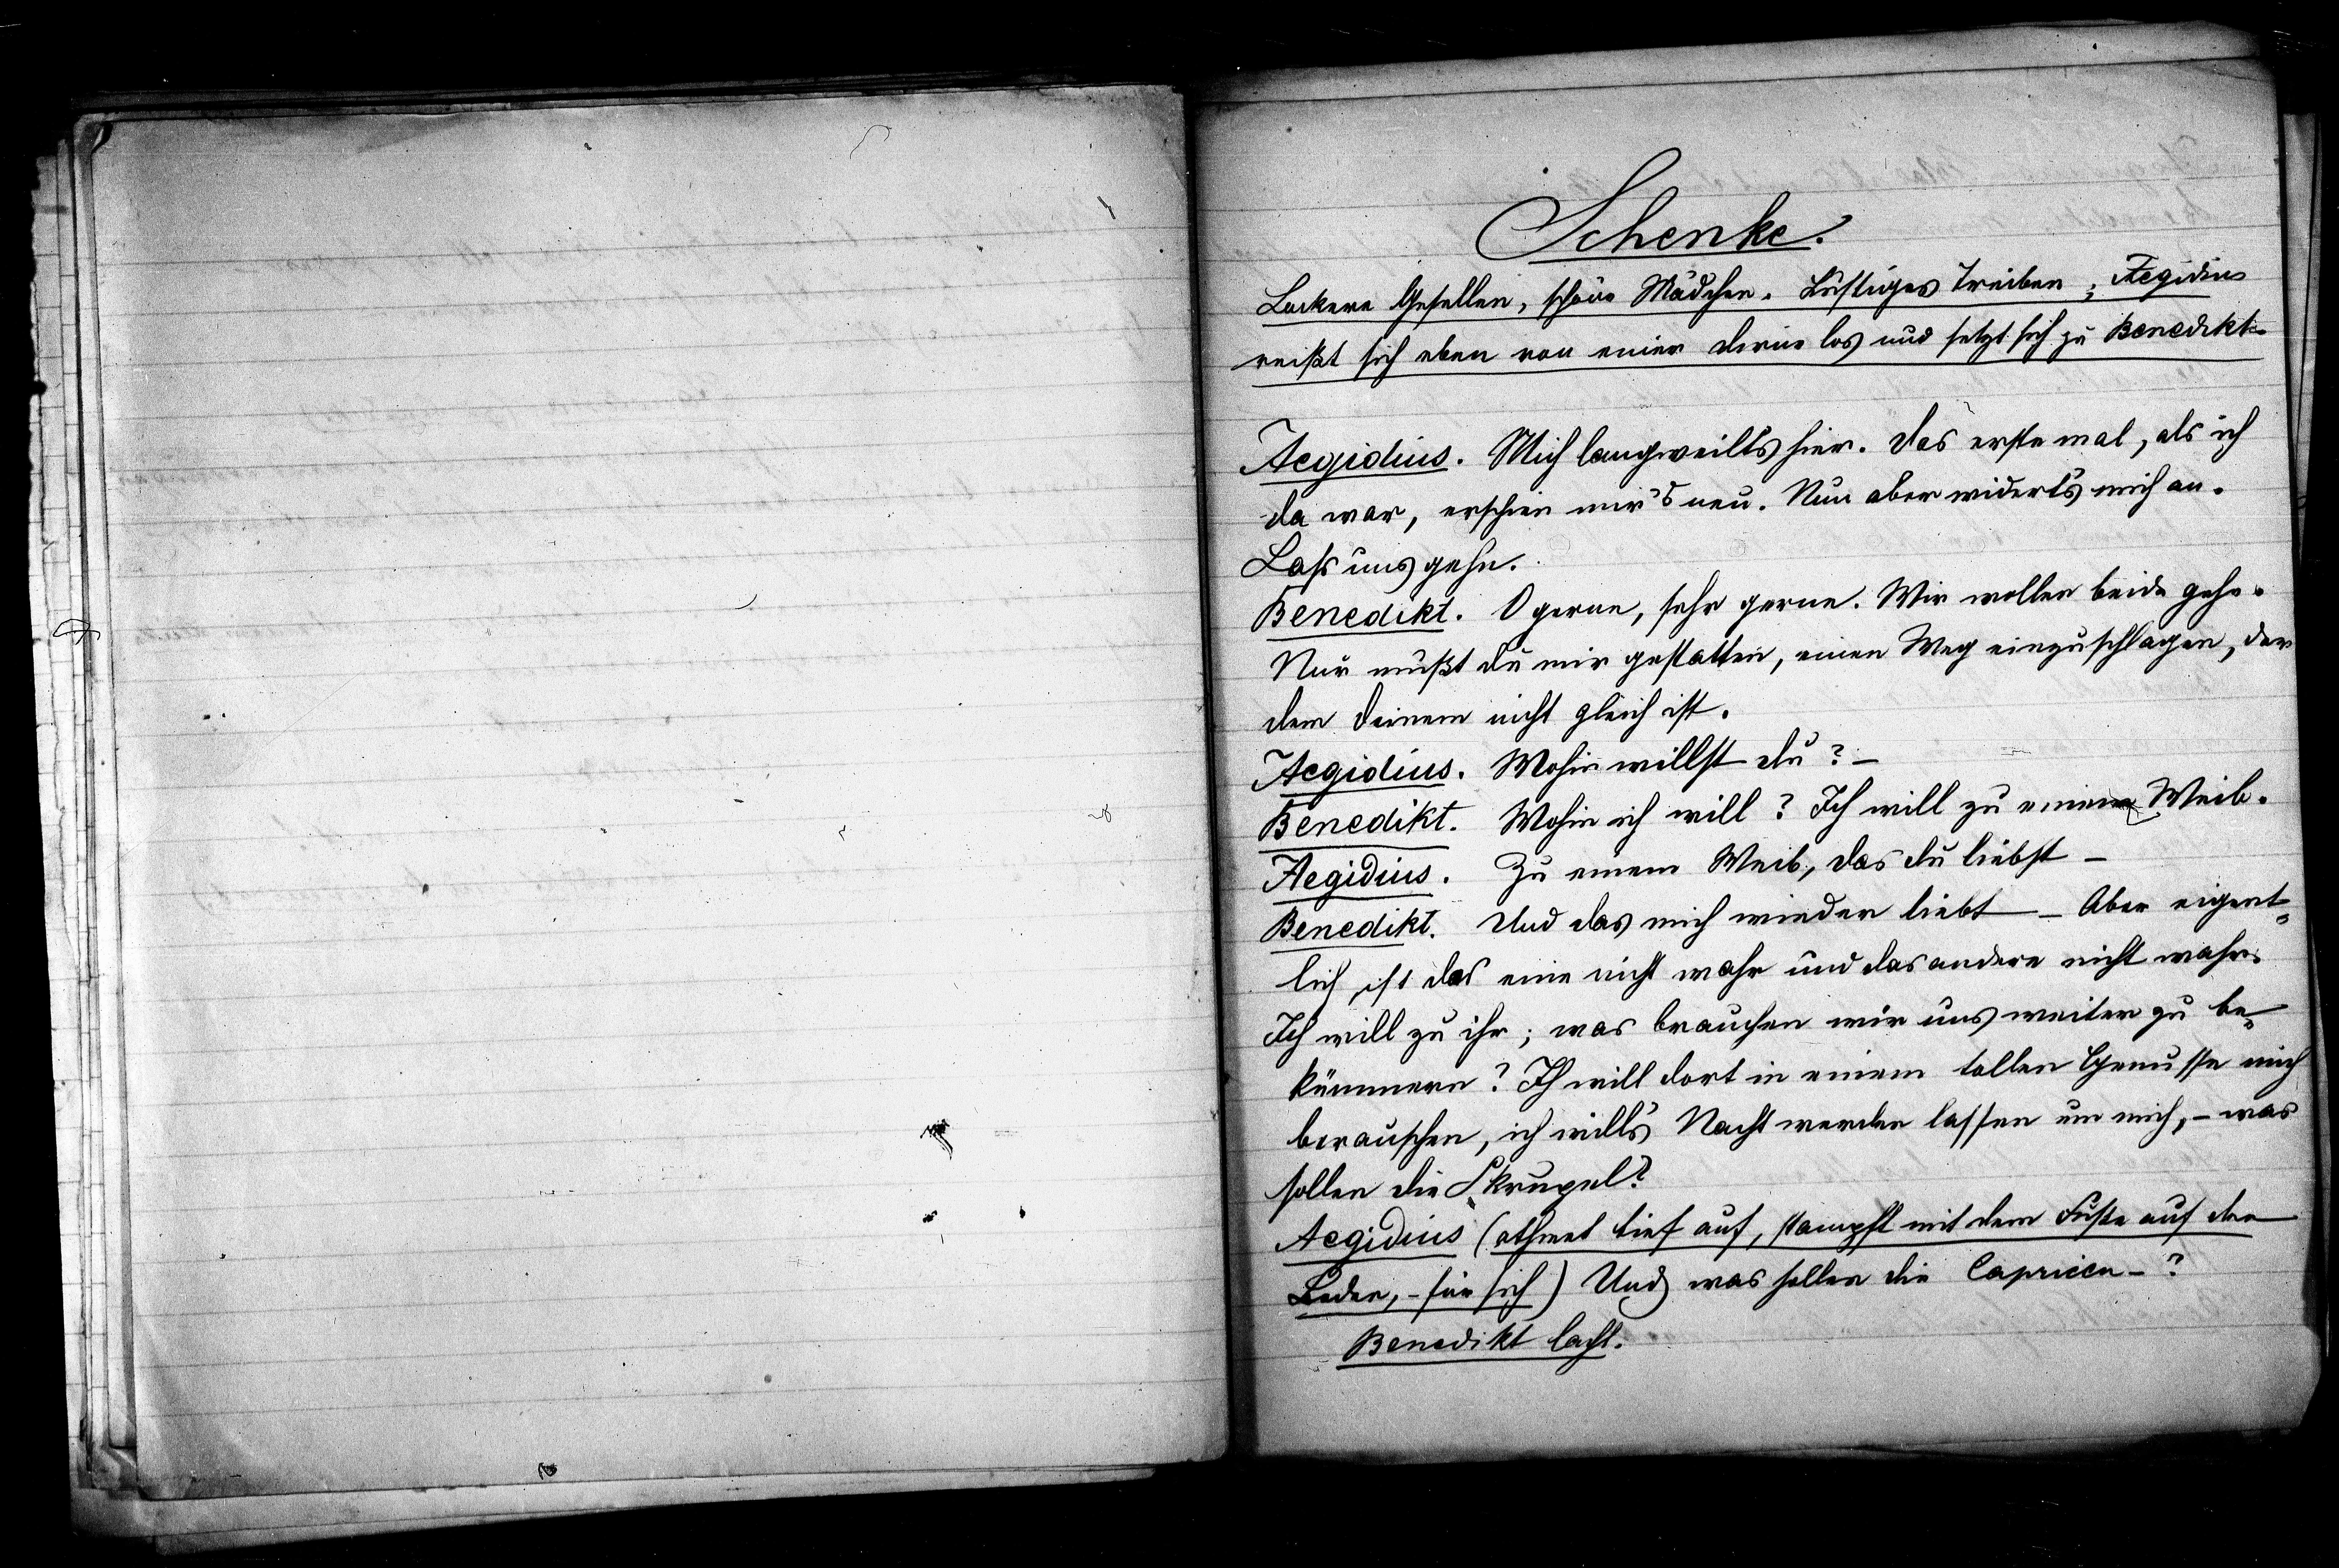 Schenke.
Lockere Gesellen, schöne Mädchen. Lustiges Treiben; Aegidius
reißt sich eben von einer Dirne los und setzt sich zu Benedikt.
Aegidius. Mich langweilts hier. Das erste mal, als ich
da war, erschien mir's neu. Nun aber widert's mich an.
Lass uns gehn.
Benedikt. O gerne, sehr gerne. Wir wollen beide gehn.
Nur mußt du mir gestatten, einen Weg einzuschlagen, der
dem deinem nicht gleich ist.
Aegidius. Wohin willst du? –
Benedikt. Wohin ich will? Ich will zu einem Weib.
Aegidius. Zu einem Weib, das du liebst –
Benedikt. Und das mich wieder liebt – Aber eigent=
lich ist das eine nicht wahr und das andere nicht wahr.
Ich will zu ihr; was brauchen wir uns weiter zu be=
kümmern? Ich will dort in einem tollen Genusse mich
berauschen, ich will's Nacht werden lassen um mich, – was
sollen die Skrupel?
Aegidius (athmet tief auf, stampft mit dem Fuße auf den
Boden, – für sich) Und was sollen die Capricen –?
Benedikt lacht.